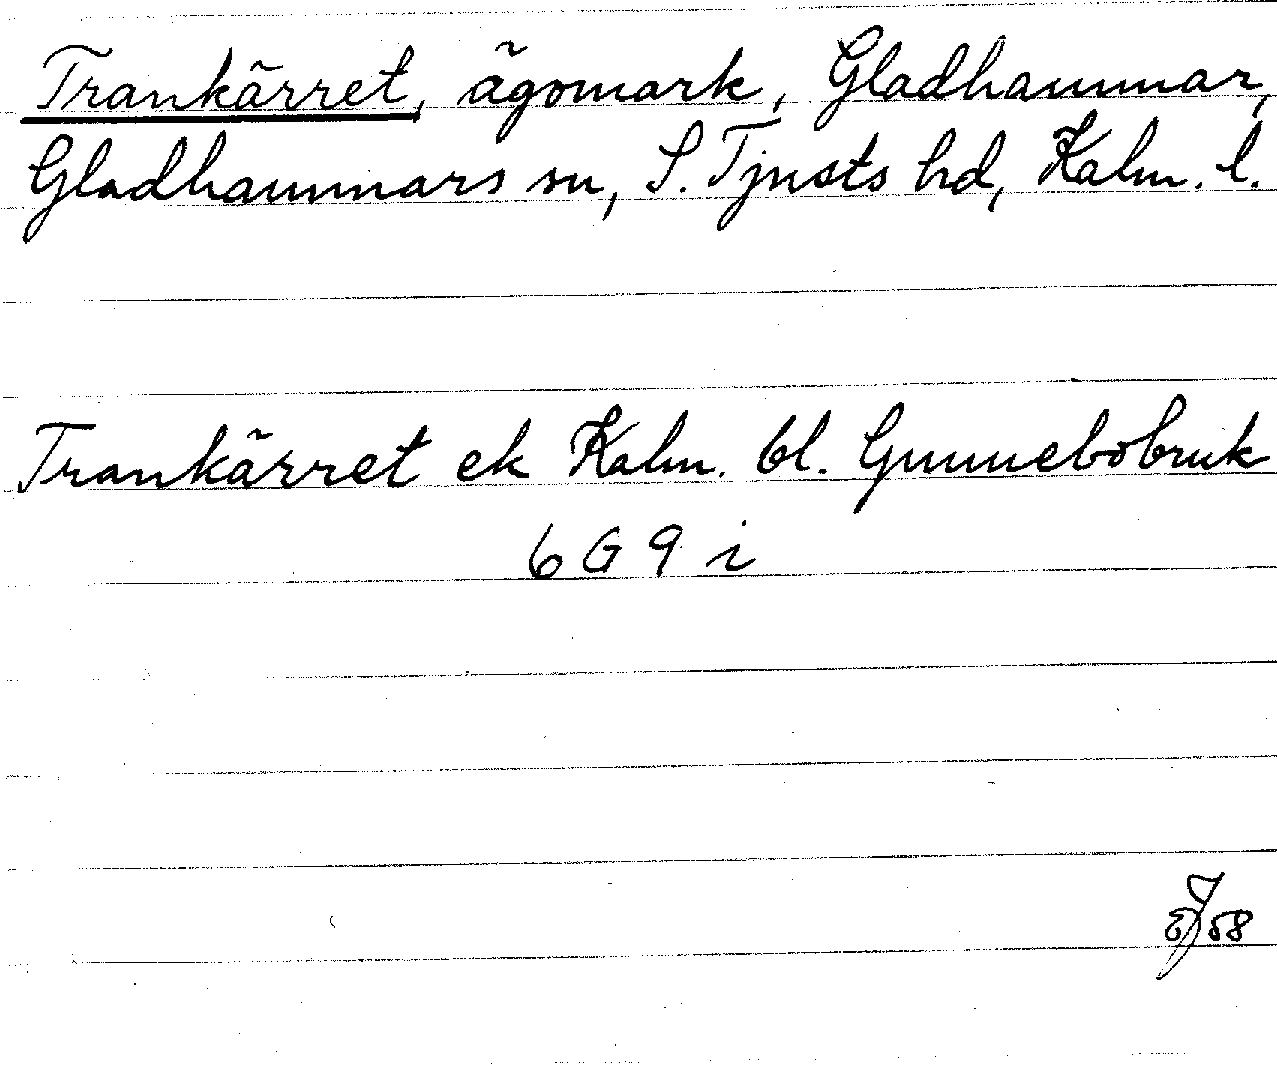 Trankärret, ägomark, Gladhammar,
Gladhammars sn, S. Tjusts hd, Kalm. l.
Trankärret ek Kalm. bl. Gunnebobruk
6 G 9 i
58